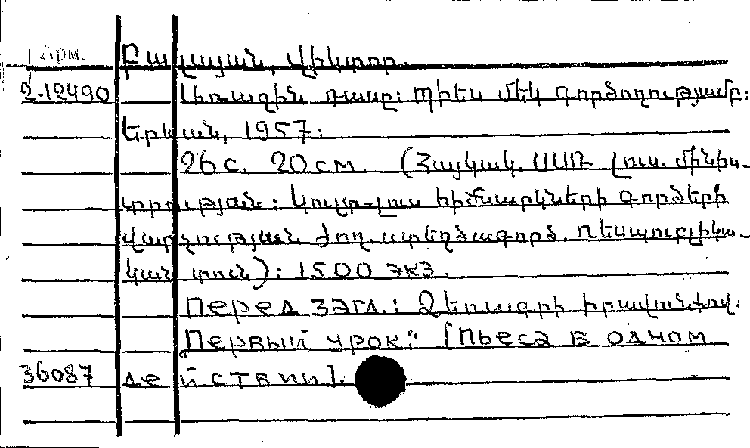 Арм. Բալայան, Վիկտոր.
2-12490 Առաջին դասը: Պիես մեկ գործողությամբ:
Երևան, 1957:
26 с. 20 см. (Հայկակ. ՍՍՌ լուս. մինիս-
տրության: Կուլտ-լուս հիմնարկների գործերի
վարչության ժող. ստեղծագործ. Ռեսպուբլիկա-
կան տուն): 1500 экз.
Перед загл.: Ձեռագրի իրավունքով.
"Первый урок". [Пьеса в одном
36087 действии].